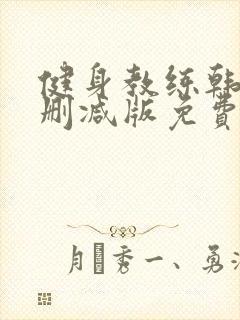 健身教练韩
删减版免费
月 秀一、勇